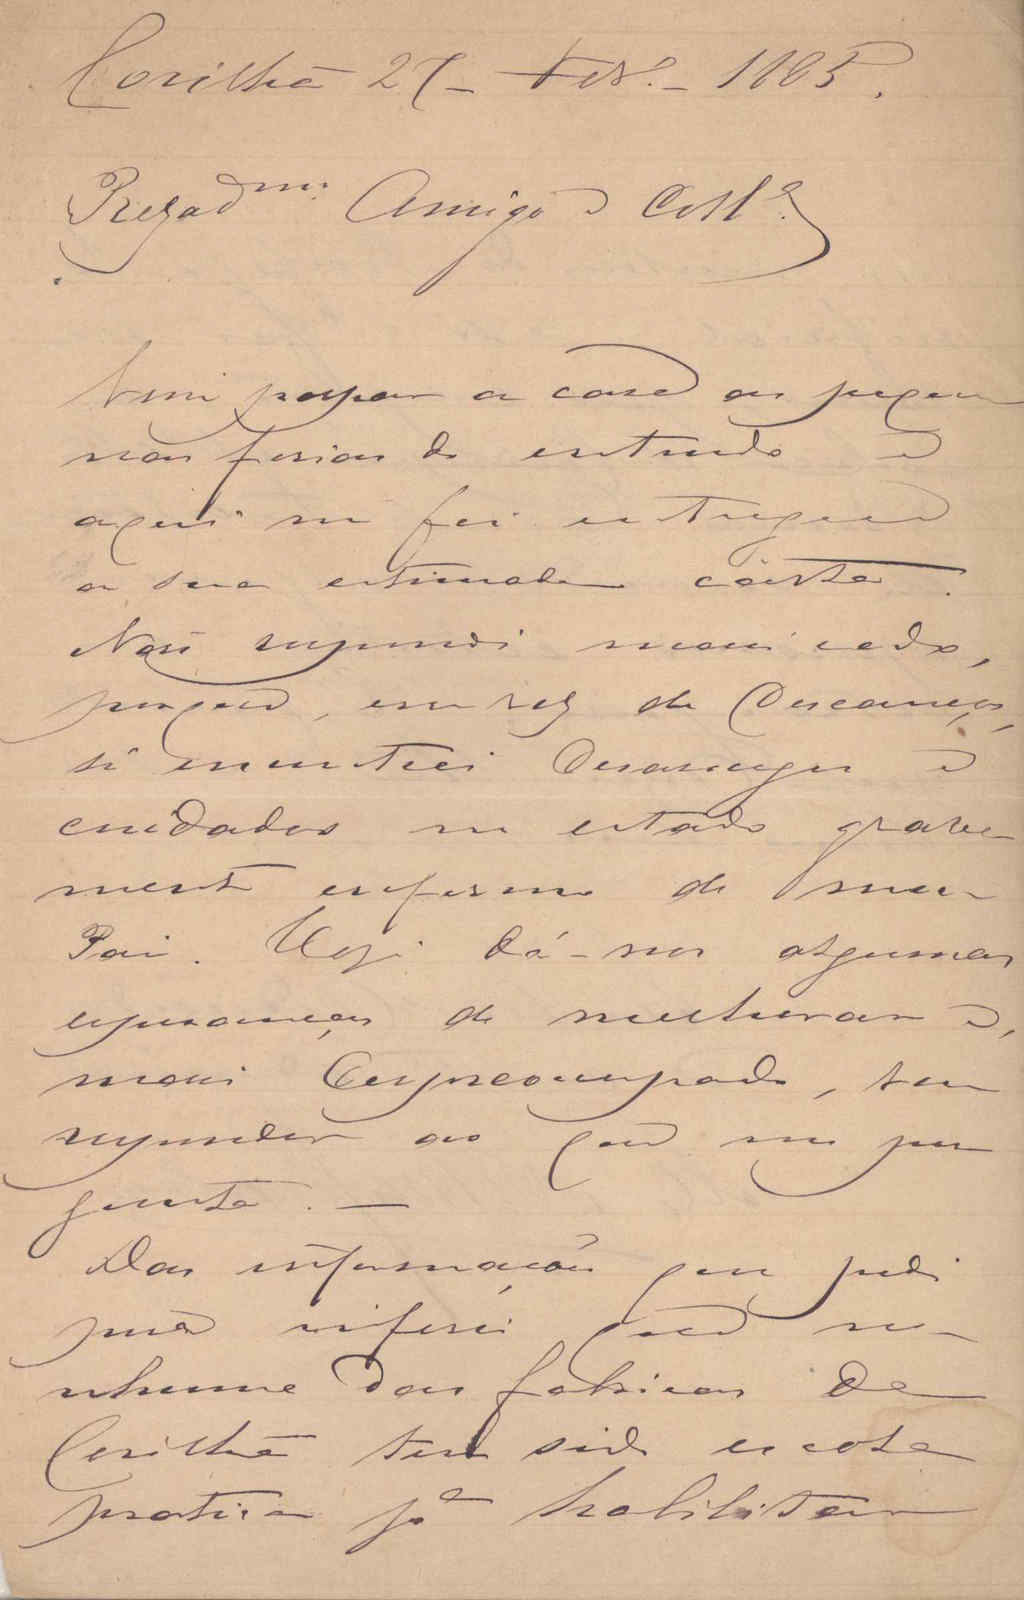 Covilhã 27 - Fev.º - 1885.
Prezad.mo Amigo e Coll.ª
Vim passar a casa as peque
nas ferias do entrudo e
aqui me foi entregue
a sua estimada carta.
Não respondi mais cedo,
porque, em vez de descanço,
só encontrei desasocego e
cuidados no estado grave
mente enfermo de meu
Pai. Hoje dá-nos algumas
esperanças de melhoras e,
mais despreoccupado, vou
responder ao que me per
gunta. —
Das informações que pedi
pude inferir que ne-
nhuma das fabricas da
Covilhã tem sido escola
pratica p.ª habilitar